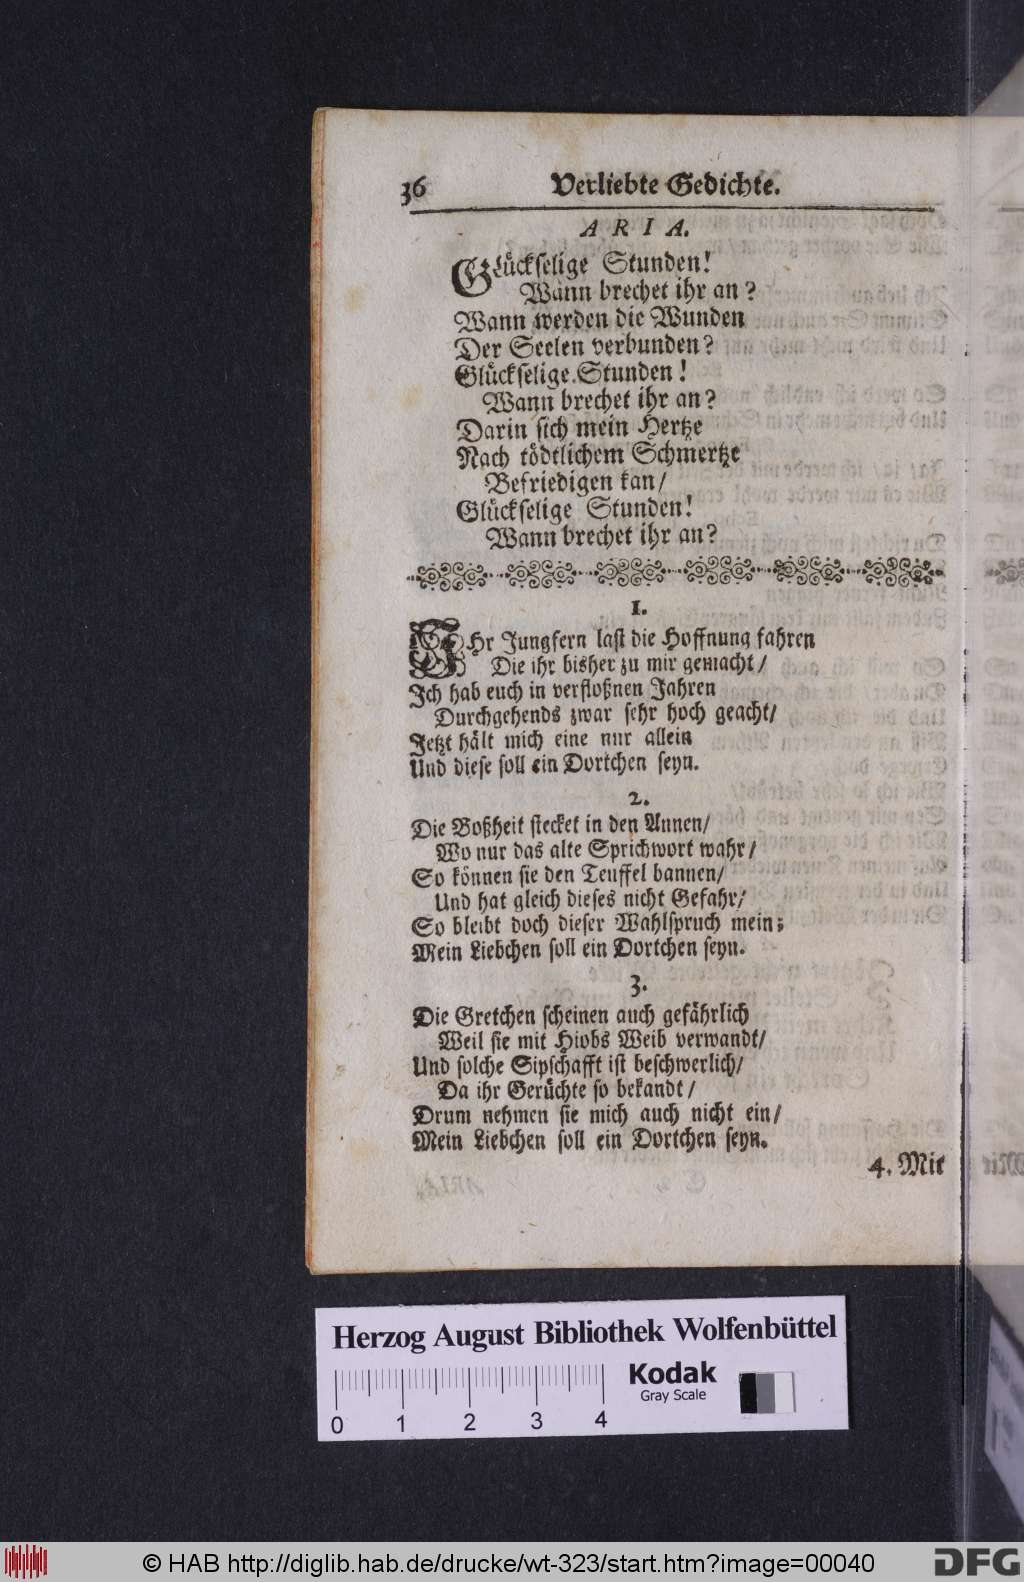 36 Verliebte Gedichte.
ARIA.
Glückselige Stunden!
Wann brechet ihr an?
Wann werden die Wunden
Der Seelen verbunden?
Glückselige Stunden!
Wann brechet ihr an?
Darin sich mein Hertze
Nach tödtlichem Schmertze
Befriedigen kan/
Glückselige Stunden!
Wann brechet ihr an?
1.
IHr Jungfern last die Hoffnung fahren
Die ihr bisher zu mir gemacht/
Ich hab euch in verfloßnen Jahren
Durchgehends zwar sehr hoch geacht/
Jetzt hält mich eine nur allein
Und diese soll ein Dortchen seyn.
2.
Die Boßheit stecket in den Annen/
Wo nur das alte Sprichwort wahr/
So können sie den Teuffel bannen/
Und hat gleich dieses nicht Gefahr/
So bleibt doch dieser Wahlspruch mein;
Mein Liebchen soll ein Dortchen seyn.
3.
Die Gretchen scheinen auch gefährlich
Weil sie mit Hiobs Weib verwandt/
Und solche Sipschafft ist beschwerlich/
Da ihr Gerüchte so bekandt/
Drum nehmen sie mich auch nicht ein/
Mein Liebchen soll ein Dortchen seyn.
4. Mit
Herzog August Bibliothek Wolfenbüttel
Kodak
Gray Scale
0 1 2 3 4
© HAB http://diglib.hab.de/drucke/wt-323/start.htm?image=00040
DFG